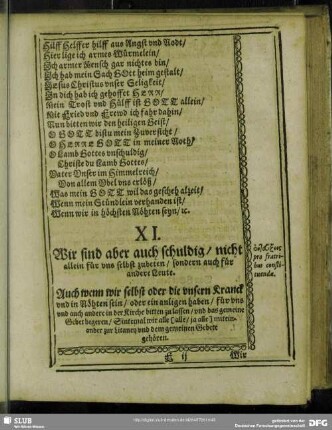 Hilff Helffer hilff aus Angst vnd Nodt/
Hier lige ich armes Würmelein/
Ich armer Mensch gar nichtes bin/
Ich hab mein Sach GOtt heim gestalt/
Jesus Christus vnser Seligkeit/
In dich hab ich gehoffet HERR/
Mein Trost vnd Hülff ist GOTT allein/
Mit Fried vnd Frewd ich fahr dahin/
Nun bitten wir den heiligen Geist/
O GOTT bistu mein Zuversicht/
O HERRE GOTT in meiner Noth/
O Lamb Gottes vnschuldig/
Christe du Lamb Gottes/
Vater Vnser im Himmelreich/
Von allem Vbel vns erlöß/
Was mein GOTT wil das gescheh alzeit/
Wenn mein Stündlein verhanden ist/
Wenn wir in höchsten Nöhten seyn/ ꝛc.
XI.
Wir sind aber auch schuldig/ nicht
allein für vns selbst zubeten/ sondern auch für
andere Leute.
pro fratri-
bus consti-
tuenda.
Auch wenn wir selbst oder die vnsern Kranck
vnd in Nöhten sein/ oder ein anligen haben/ für vns
vnd auch andere in der Kirche bitten zu lassen/ vnd das gemeine
Gebet begeren/ Sintemal wir alle Falle/ ja alle
ander zur Litaney vnd dem gemeinen Gebete
gehören.
E ij
Wir
SLUB
Wir führen Wissen.
gefördert von der
Deutschen Forschungsgemeinschaft